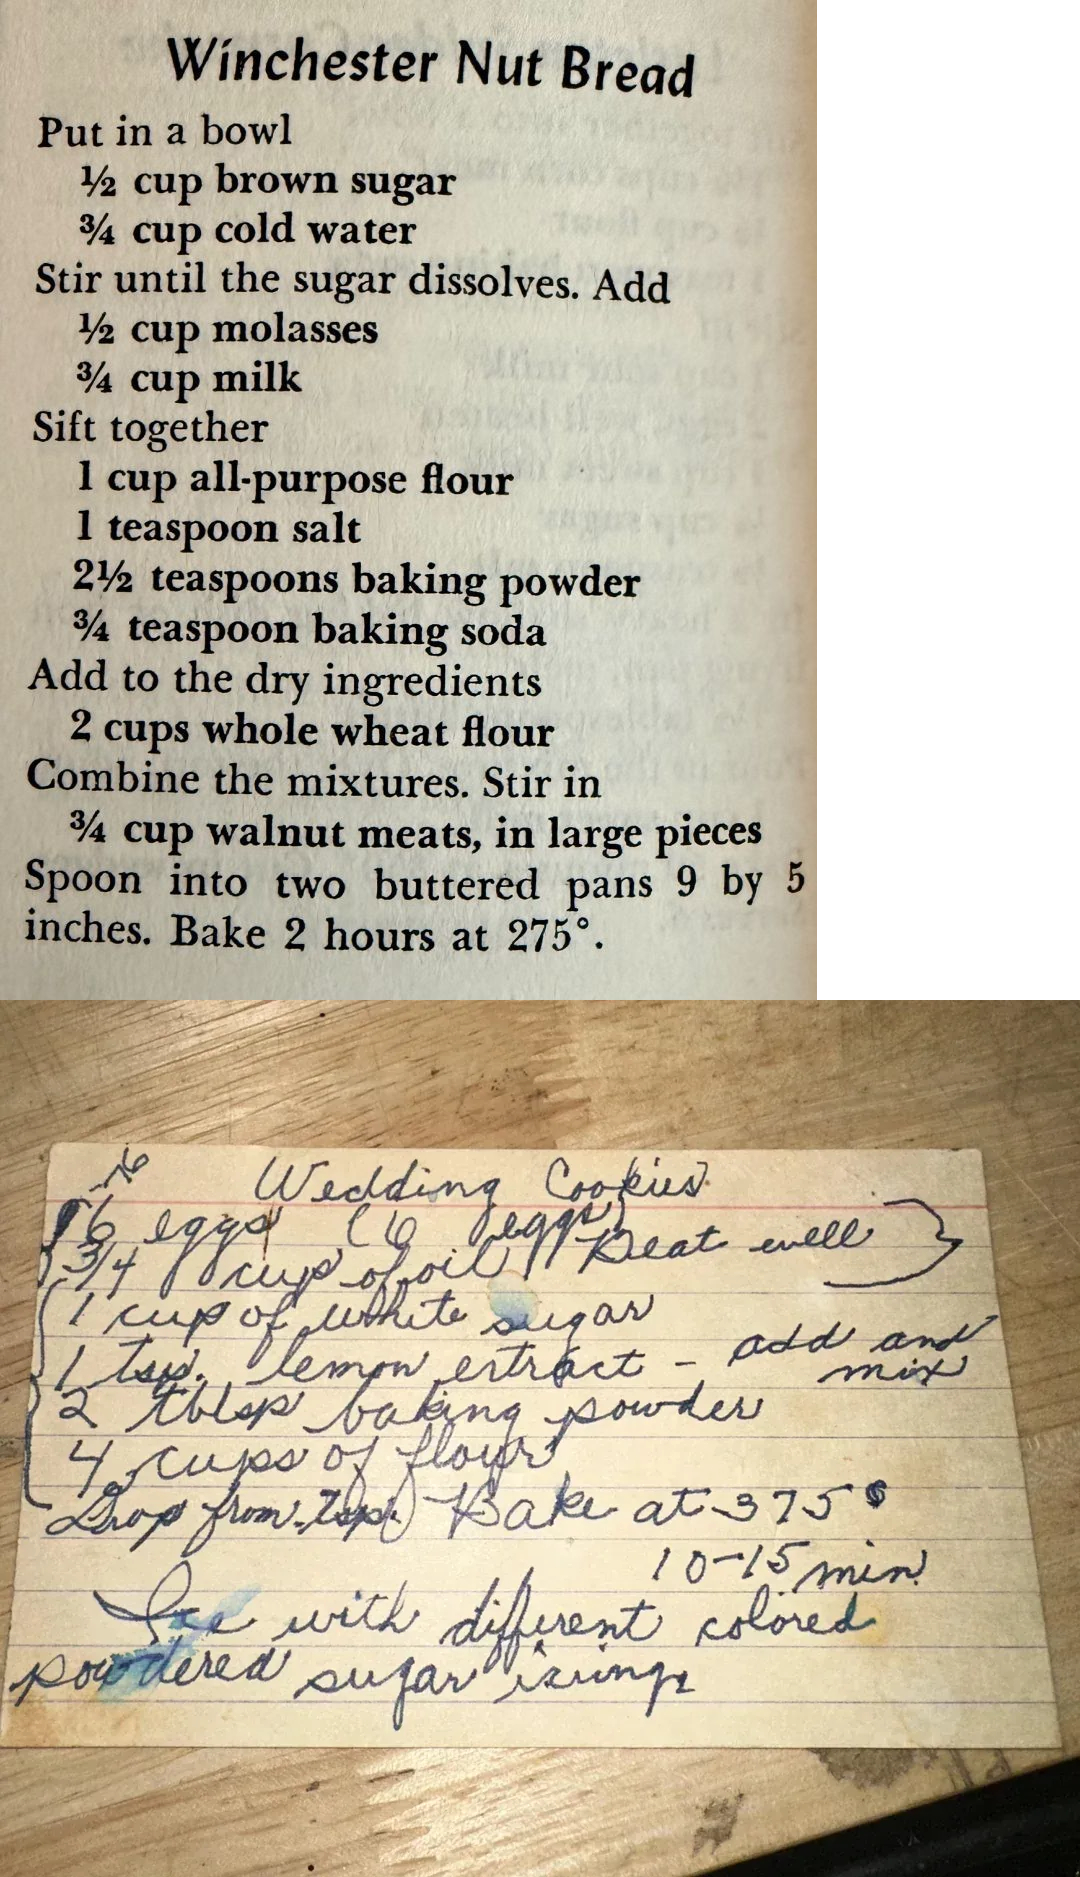 Winchester Nut Bread
Put in a bowl
½ cup brown sugar
¾ cup cold water
Stir until the sugar dissolves. Add
½ cup molasses
¾ cup milk
Sift together
1 cup all-purpose flour
1 teaspoon salt
2½ teaspoons baking powder
¾ teaspoon baking soda
Add to the dry ingredients
2 cups whole wheat flour
Combine the mixtures. Stir in
¾ cup walnut meats, in large pieces
Spoon into two buttered pans 9 by 5
inches. Bake 2 hours at 275°.
Wedding Cookies
6 eggs (6 eggs)
3/4 cup of oil Beat well
1 cup of white sugar
1 tsp. lemon extract - add and
mix
2 tblsp baking powder
4 cups of flour
Drop from tsp. Bake at 375°
10-15 min.
Ice with different colored
powdered sugar icing